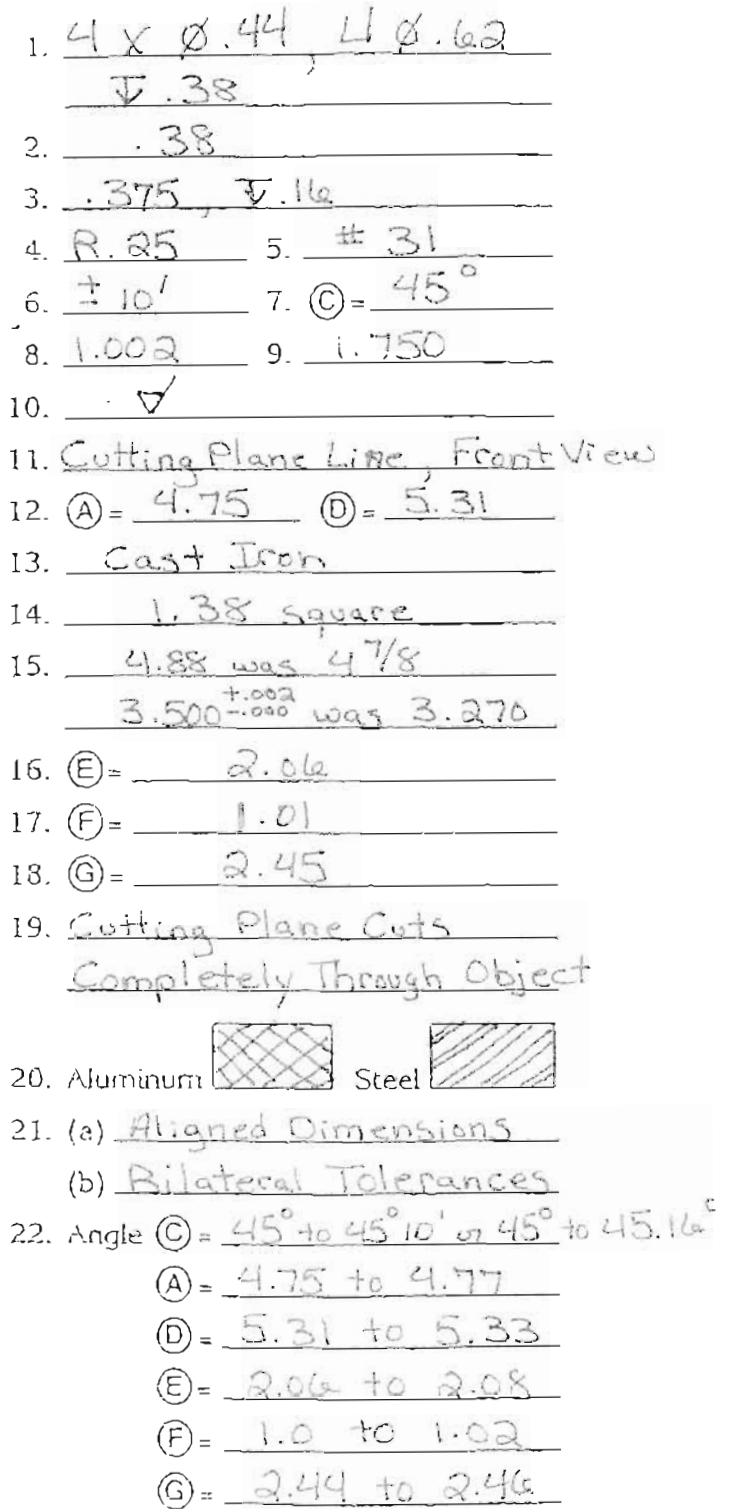 1. 4 X Ø.44, ⌴ Ø.62
↧ .38
2. .38
3. .375, ↧ .16
4. R.25 5. # 31
6. ± 10' 7. Ⓒ = 45°
8. 1.002 9. 1.750
10. ∇
11. Cutting Plane Line, Front View
12. Ⓐ = 4.75 Ⓓ = 5.31
13. Cast Iron
14. 1.38 square
15. 4.88 was 4 7/8
3.500 +.002 -.000 was 3.270
16. Ⓔ = 2.06
17. Ⓕ = 1.01
18. Ⓖ = 2.45
19. Cutting Plane Cuts
Completely Through Object
20. Aluminum Steel
21. (a) Aligned Dimensions
(b) Bilateral Tolerances
22. Angle Ⓒ = 45° to 45°10' or 45° to 45.16°
Ⓐ = 4.75 to 4.77
Ⓓ = 5.31 to 5.33
Ⓔ = 2.06 to 2.08
Ⓕ = 1.0 to 1.02
Ⓖ = 2.44 to 2.46